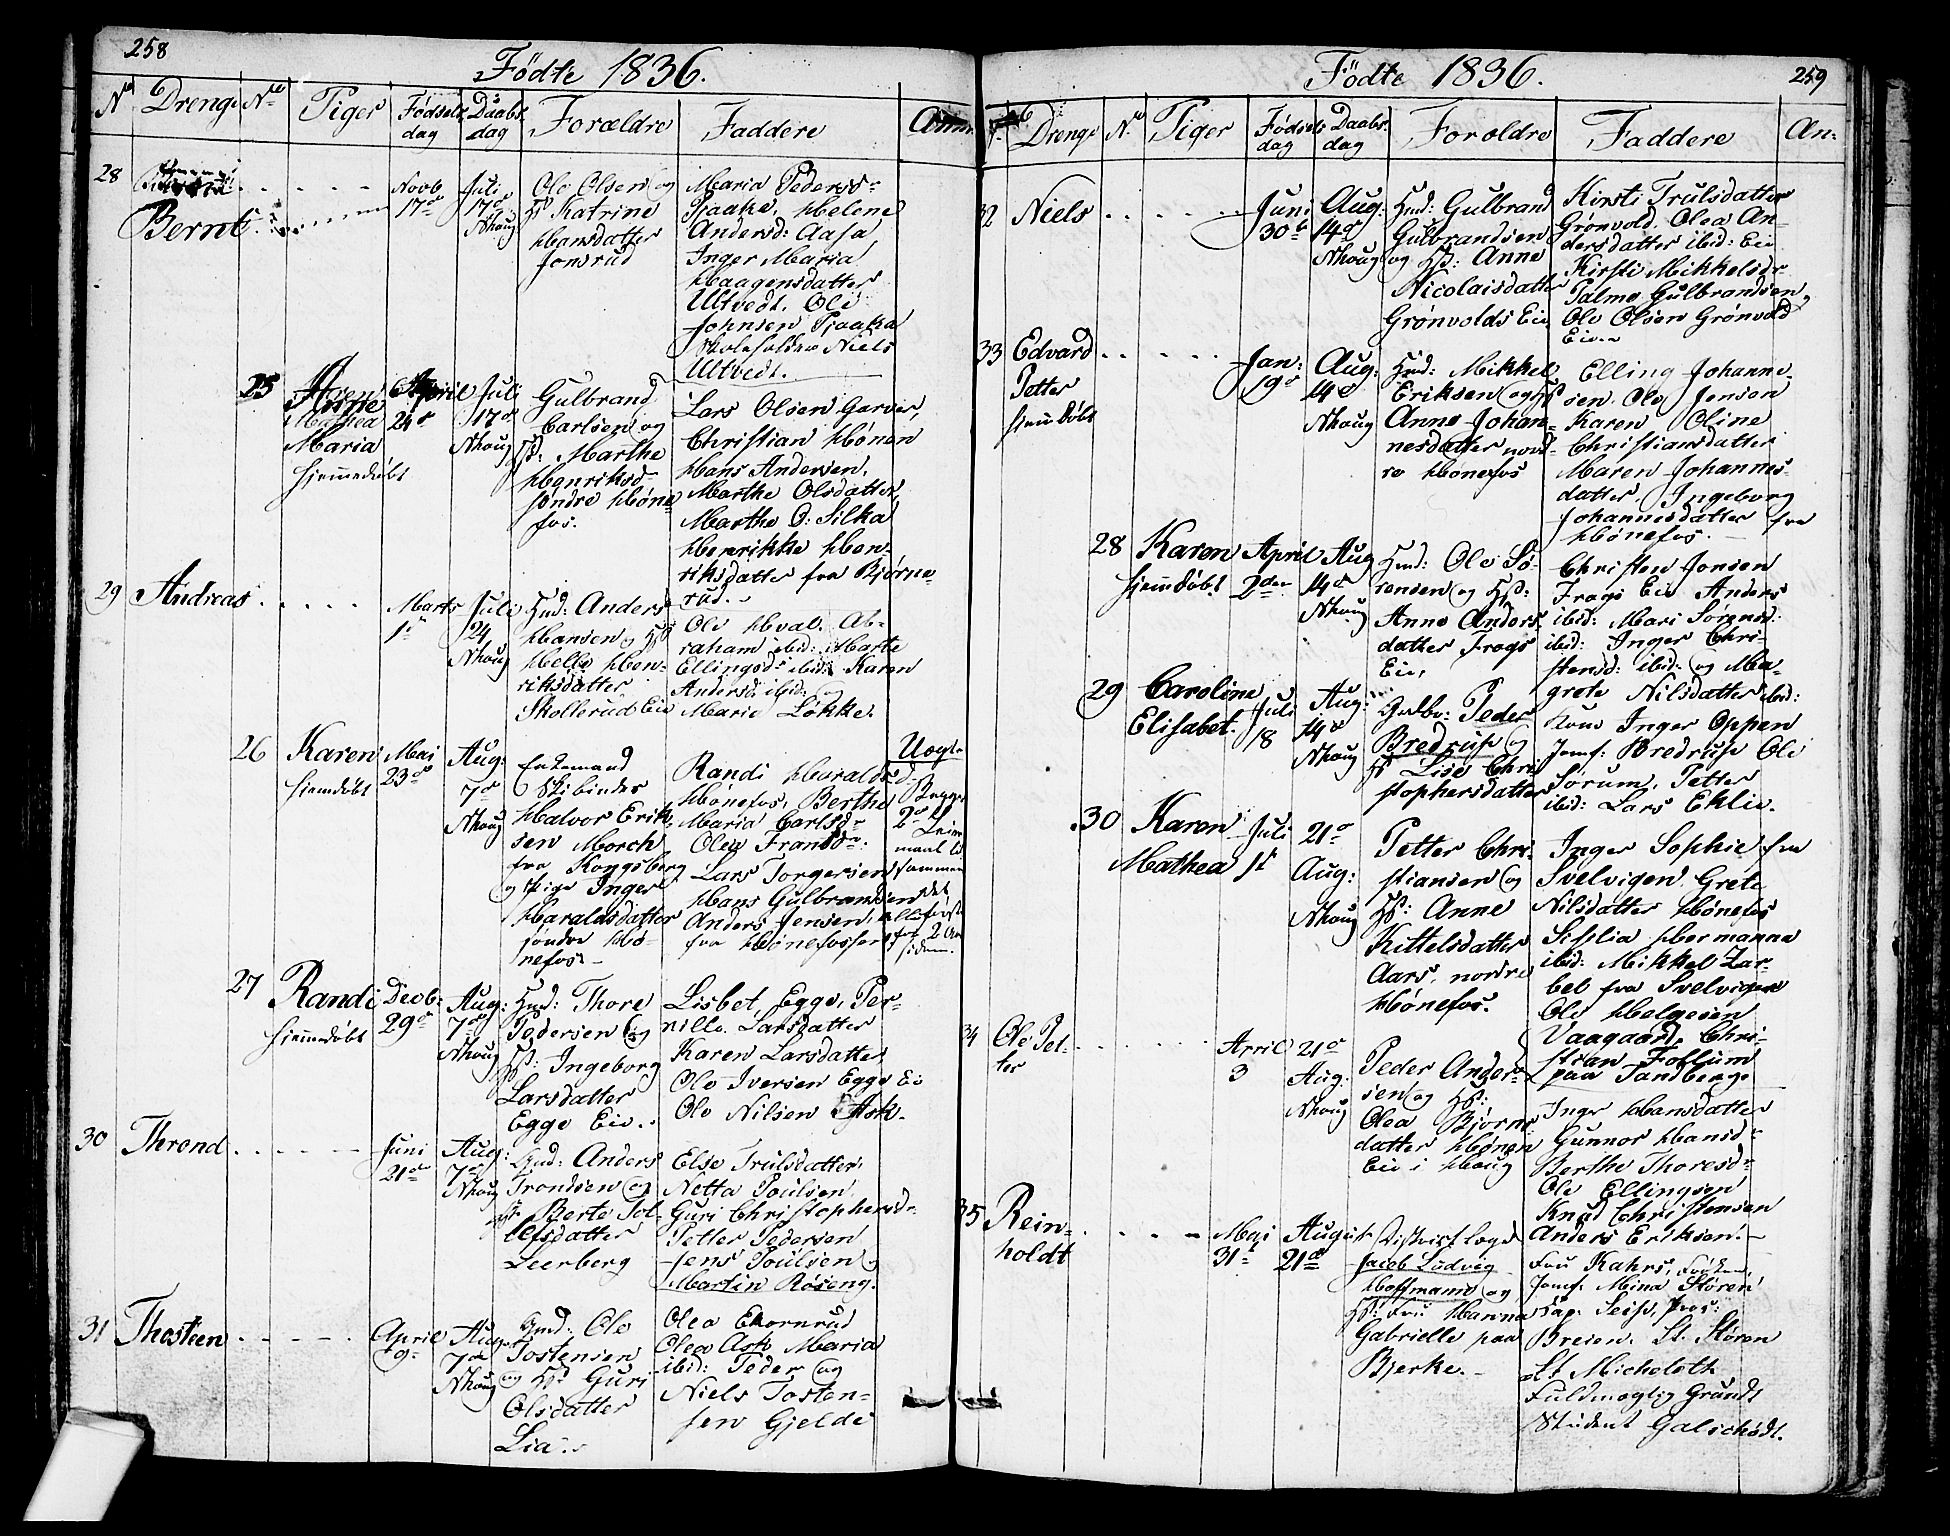 258
Födte 1836.
No Drenge No Piger Födsels dag Daabs dag Forældre Faddere Anm.
28
Bernt
Novb. 17de
Juli 17de Nhoug
Ole Olsen og
Hst Katrine
Hansdatter
Jonsrud
Maria Peders-
Pjaaka, Helene
Andersd: Aasa
Inger Maria
Haagensdatter
Utvedt. Ole
Johnsen Pjaaka
Niels
Utvedt.
25
Maria
hjemmedöbt
April 24de
Juli 17de Nhoug
Gulbrand
Carlsen og
Hst: Marthe
Henriksd-
söndre Höne
fos.
Lars Olsen Garver,
Christian Hönen
Hans Andersen,
Marthe Olsdatter,
Marthe O: Silka
Henrikke Hen-
riksdatter fra Bjørne-
rud.
29
Andreas
Marts 1te
Juli 24 Nhoug
Gmd: Anders
Hansen og Hst
Helle Hen-
riksdatter
Skollerud Eie
Ole Hval. Ab-
raham ibid: Marte
Ellingsdr ibid: Karen
Andersd: ibid:
Maria Løkke.
26
Karen
hjemdöbt
Mai 23de
Aug: 7de Nhoug
Enkemand
Skibinder
Halvor Erik-
sen Morch
fra Kongsberg
og Pige Inger
Haraldsdatter
söndre Hö-
nefos
Randi Haraldsd-
Hönefos, Berthe
Maria Carlsd-
Olea Fransd-
Lars Torgersen
Hans Gulbrandsen
Anders Jensen, alle
fra Hönefossen
Uægte
27
Randi
hjemmedöbt
Decb: 29de
Aug: 7de Nhoug
Hmd: Thore
Pedersen og
Hst: Ingeborg
Larsdatter
Egge Eie.
Lisbet Egge, Per-
nille Larsdatter
Karen Larsdatter
Ole Iversen Egge Ei
Ole Nilsen Ask.
30
Thrond
Juni 21de
Aug: 7de Nhoug
Gmd: Anders
Trondsen og
Hst Berte Tol-
lefsdatter
Leerberg
Else Trulsdatter,
Netta Poulsen
Guri Christophersd-
Petter Pedersen
Jens Poulsen og
Martin Röseng.
31
Thosteen
April 9de
Aug. 7de Nhoug
Gmd: Ole
Tostensen
og Hst Guri
Olsdatter
Lia.
Olea Ekornrud
Olea Ask Maria
ibid: Peder og
Niels Tosten-
sen Gjelde
259
Födte 1836.
Drenge No Piger Födsels dag Daabs. dag Foroldre Faddere An:
32
Niels
Juni 30te
Aug: 14de Nhoug
Hmd: Gulbrand
Gulbrandsen
og Hst: Anne
Nicolaisdatter
Grönvolds Eie
Kirsti Trulsdatter
Grønvold. Olea An-
dersdatter ibid: Eie
Kirsti Mikkelsdr
Palme Gulbrandsen,
Ole Olsen Grønvold
Eie
33
Edvard
Petter
hjemdöbt
Jan: 19de
Aug: 14de Nhoug
Hmd: Mikkel
Eriksen og Hst
Anne Johan-
nesdatter nord-
re Hönefos
Elling Johanne-
sen. Ole Jensen
Karen Oline
Christiansdatter
Maren Johannes-
datter, Ingeborg
Johannesdatter fra
Hönefos.
28
Karen
hjemdöbt
April 2den
Aug 14de Nhoug
Hmd: Ole Sö-
rensen og Hst:
Anne Anders-
datter Frogs
Eie,
Christen Jonsen
Frogs Eie Anders
ibid: Mari Sörensd:
ibid: Inger Chri-
stensd: ibid: og Ma-
grete Nilsdatter ibid:
29
Caroline
Elisabet.
Juli 18
Aug: 14de Nhoug
Peder
Bredrup og
Hst Lise Chri
stophersdatter
Inger Oppen
Jomf: Bredrup Ole
Sörum, Petter
ibid: Lars Eklie.
30
Karen
Mathea
Juli 1st
21de Aug: Nhoug
Petter Chri-
stiansen og
Hst: Anne
Kittelsdatter
Aars, nordre
Hönefos.
Inger Sophie fra
Svelvigen Grete
Nilsdatter Hönefos
Hermanna
ibid: Mikkel Zar-
bel fra Svelvigen
Ole Helgesen
Vaagaard, Chri-
stian Follum
paa Tandberg.
34
Ole Pet-
ter
April 3
21de Aug: Nhoug
Peder Ander-
sen og Hst:
Olea Bjørns-
datter Hönen
Eie i Houg
Ingr Hansdatter
Gunnor Hansd-
Berthe Thoresd-
Ole Ellingsen
Knud Christensen
Anders Eriksen.
35
Rein-
holdt
Mai 31te
August 21de
District læge
Jacob Ludvig
Hoffmann og
Hst: Fru Hanna
Gabrielle paa
Bjerke.
Fru Kahrs, Fröken,
Jomf. Mina Stören
Cap. Seip, Pros:
Breien. Lt. Stören
Lt Micheleth
Fuldmægtig Grundt
Student Galschödt.